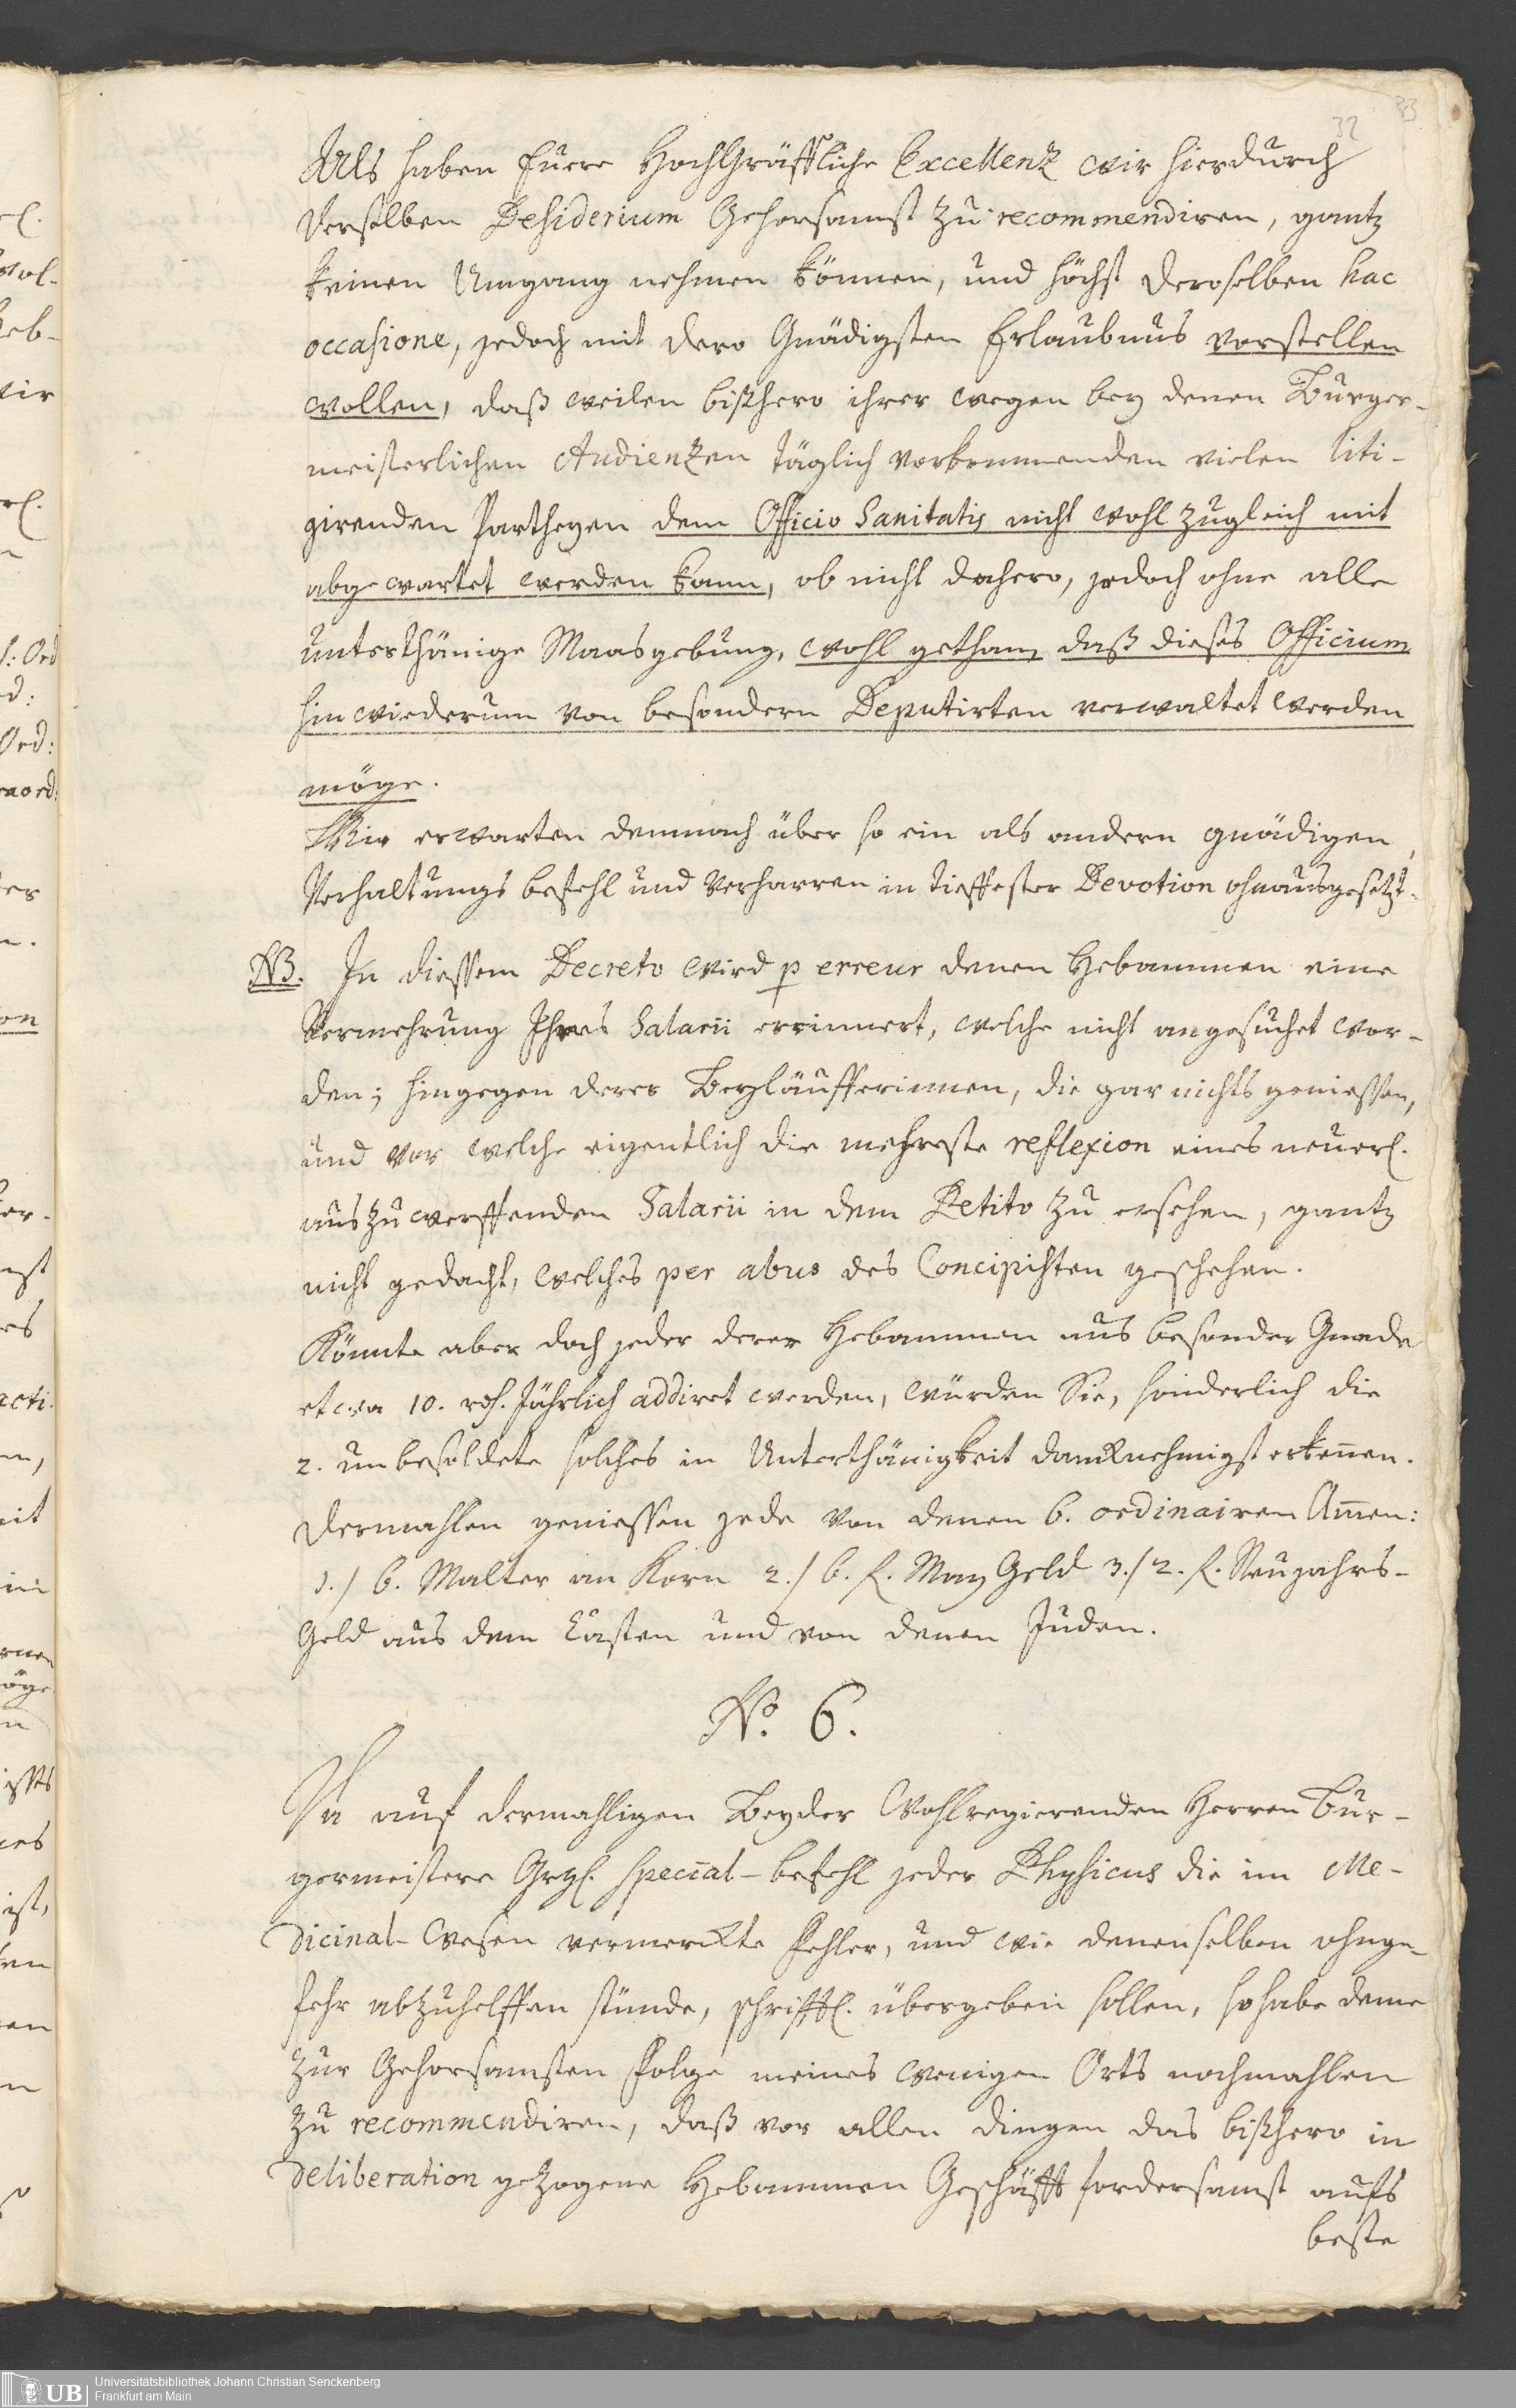 32
33
Als haben Euere Hochgräffliche Excellenz wir hierdurch
derselben Desiderium Gehorsamst zu recommendiren, gantz
keinen Umgang nehmen können, und höchst deroselben hac
occasione, jedoch mit dero Gnädigsten Erlaubnus vorstellen
wollen, daß weilen bißhero ihrer wegen bey denen Burger-
meisterlichen Audienzen täglich vorkommenden vielen liti-
girenden Partheyen dem Officio Sanitatis nicht wohl zugleich mit
abgewartet werden kann, ob nicht dahero, jedoch ohne alle
unterthänige Maasgebung, wohl gethan, daß dieses Officium
hinwiederum von besondern Deputirten verwaltet werden
möge.
Wir erwarten demnach über so ein als andern gnädigen
Verhaltungs befehl und Verharren in tieffester Devotion ohnausgesetzt.
NB. In diessem Decreto wird p erreur denen Hebammen eine
Vermehrung Ihres Salarii erinnert, welche nicht angesuchet wor-
den; hingegen derer Beyläufferinnen, die gar nichts geniessen,
und vor welche eigentlich die mehreste reflexion eines neuerl.
auszuwerffenden Salarii in dem Petito zu ersehen, gantz
nicht gedacht, welches per abus des Concipisten geschehen.
Könnte aber doch jeder derer Hebammen aus besonder Gnade
etwa 10. rth. Jährlich addiret werden, würden Sie, sonderlich die
2. unbesoldete solches in Unterthänigkeit dancknehmigst erkennen.
Dermahlen geniessen jede von denen 6. ordinairen Amen:
1./ 6. Malter an Korn 2./ 6. f. May Geld 3./ 2. f. Neujahrs-
Geld aus dem Casten und von denen Juden.
No. 6.
Da auf dermahligen Beyder Wohlregierenden Herren Bur-
germeistere special-befehl jeder Physicus die im Me-
dicinal-Wesen vermerckte Fehler, und wie denenselben ohnge-
fehr abzuhelffen stünde, schrifftl. übergeben sollen, so habe deme
zur Gehorsamsten Folge meines wenigen Orts nochmahlen
zu recommendiren, daß vor allen dingen das bißhero in
deliberation gezogene Hebammen Geschäfft fordersamst aufs
beste
UB
Universitätsbibliothek Johann Christian Senckenberg
Frankfurt am Main